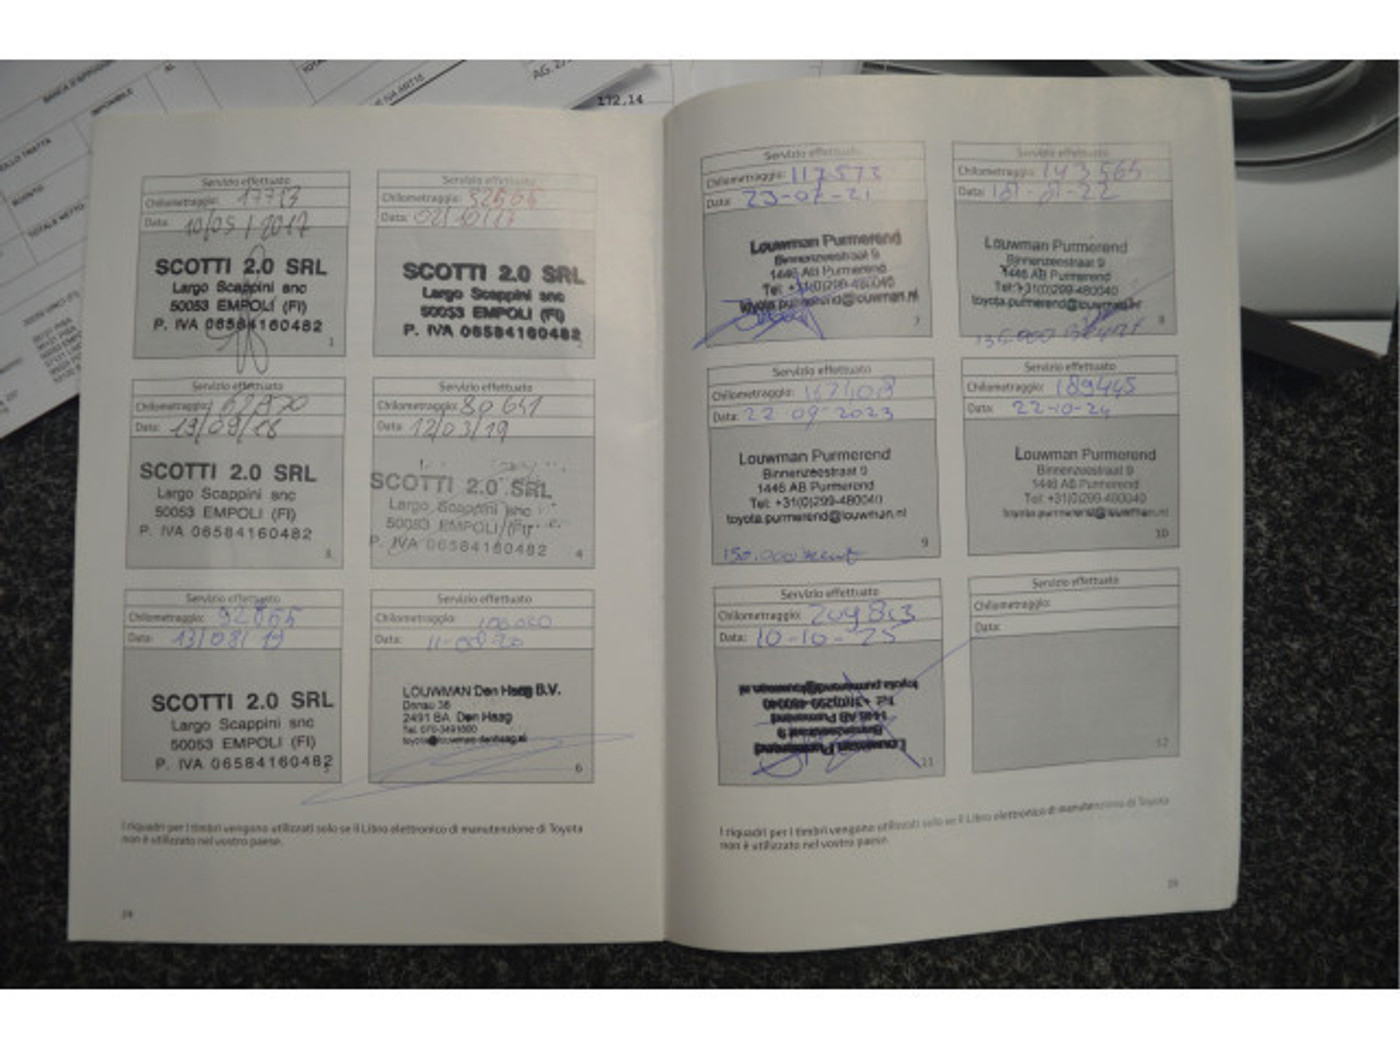 BANCA D'APPOGGIO
IMPONIBILE
AG.
172,14
SCONTO
TOTALE NETTO
Servizio effettuato
Chilometraggio: 17713
Data: 10/05/2017
SCOTTI 2.0 SRL
Largo Scappini snc
50053 EMPOLI (FI)
P. IVA 06584160482
1
Servizio effettuato
Chilometraggio:
Data: 02/10/17
SCOTTI 2.0 SRL
Largo Scappini snc
50053 EMPOLI (FI)
P. IVA 06584160482
2
Servizio effettuato
Chilometraggio:
Data: 19/09/18
SCOTTI 2.0 SRL
Largo Scappini snc
50053 EMPOLI (FI)
P. IVA 06584160482
3
Servizio effettuato
Chilometraggio: 80641
Data: 12/03/19
SCOTTI 2.0 SRL
Largo Scappini snc
50053 EMPOLI (FI)
P. IVA 06584160482
4
Servizio effettuato
Chilometraggio:
Data: 13/08/19
SCOTTI 2.0 SRL
Largo Scappini snc
50053 EMPOLI (FI)
P. IVA 06584160482
5
Servizio effettuato
Chilometraggio:
Data: 11-08-20
LOUWMAN Den Haag B.V.
Donau 36
2491 BA Den Haag
Tel.
6
I riquadri per i timbri vengono utilizzati solo se il Libro elettronico di manutenzione di Toyota
non è utilizzato nel vostro paese.
24
Servizio effettuato
Chilometraggio: 117573
Data: 23-07-21
Louwman Purmerend
Binnenzeestraat 9
1446 AB Purmerend
Tel: +31(0)299-480040
toyota.purmerend@louwman.nl
7
Servizio effettuato
Chilometraggio: 143565
Data:
Louwman Purmerend
Binnenzeestraat 9
1446 AB Purmerend
Tel: +31(0)299-480040
toyota.purmerend@louwman.nl
8
135.000
Servizio effettuato
Chilometraggio: 167408
Data: 22 09 2023
Louwman Purmerend
Binnenzeestraat 9
1446 AB Purmerend
Tel: +31(0)299-480040
toyota.purmerend@louwman.nl
9
150.000
Servizio effettuato
Chilometraggio: 189445
Data: 22-10-24
Louwman Purmerend
Binnenzeestraat 9
1446 AB Purmerend
Tel: +31(0)299-480040
toyota.purmerend@louwman.nl
10
Servizio effettuato
Chilometraggio: 209813
Data: 10-10-25
Louwman Purmerend
Binnenzeestraat 9
1446 AB Purmerend
Tel: +31(0)299-480040
toyota.purmerend@louwman.nl
11
Servizio effettuato
Chilometraggio:
Data:
12
I riquadri per i timbri vengono utilizzati solo se il Libro elettronico di manutenzione di Toyota
non è utilizzato nel vostro paese.
25